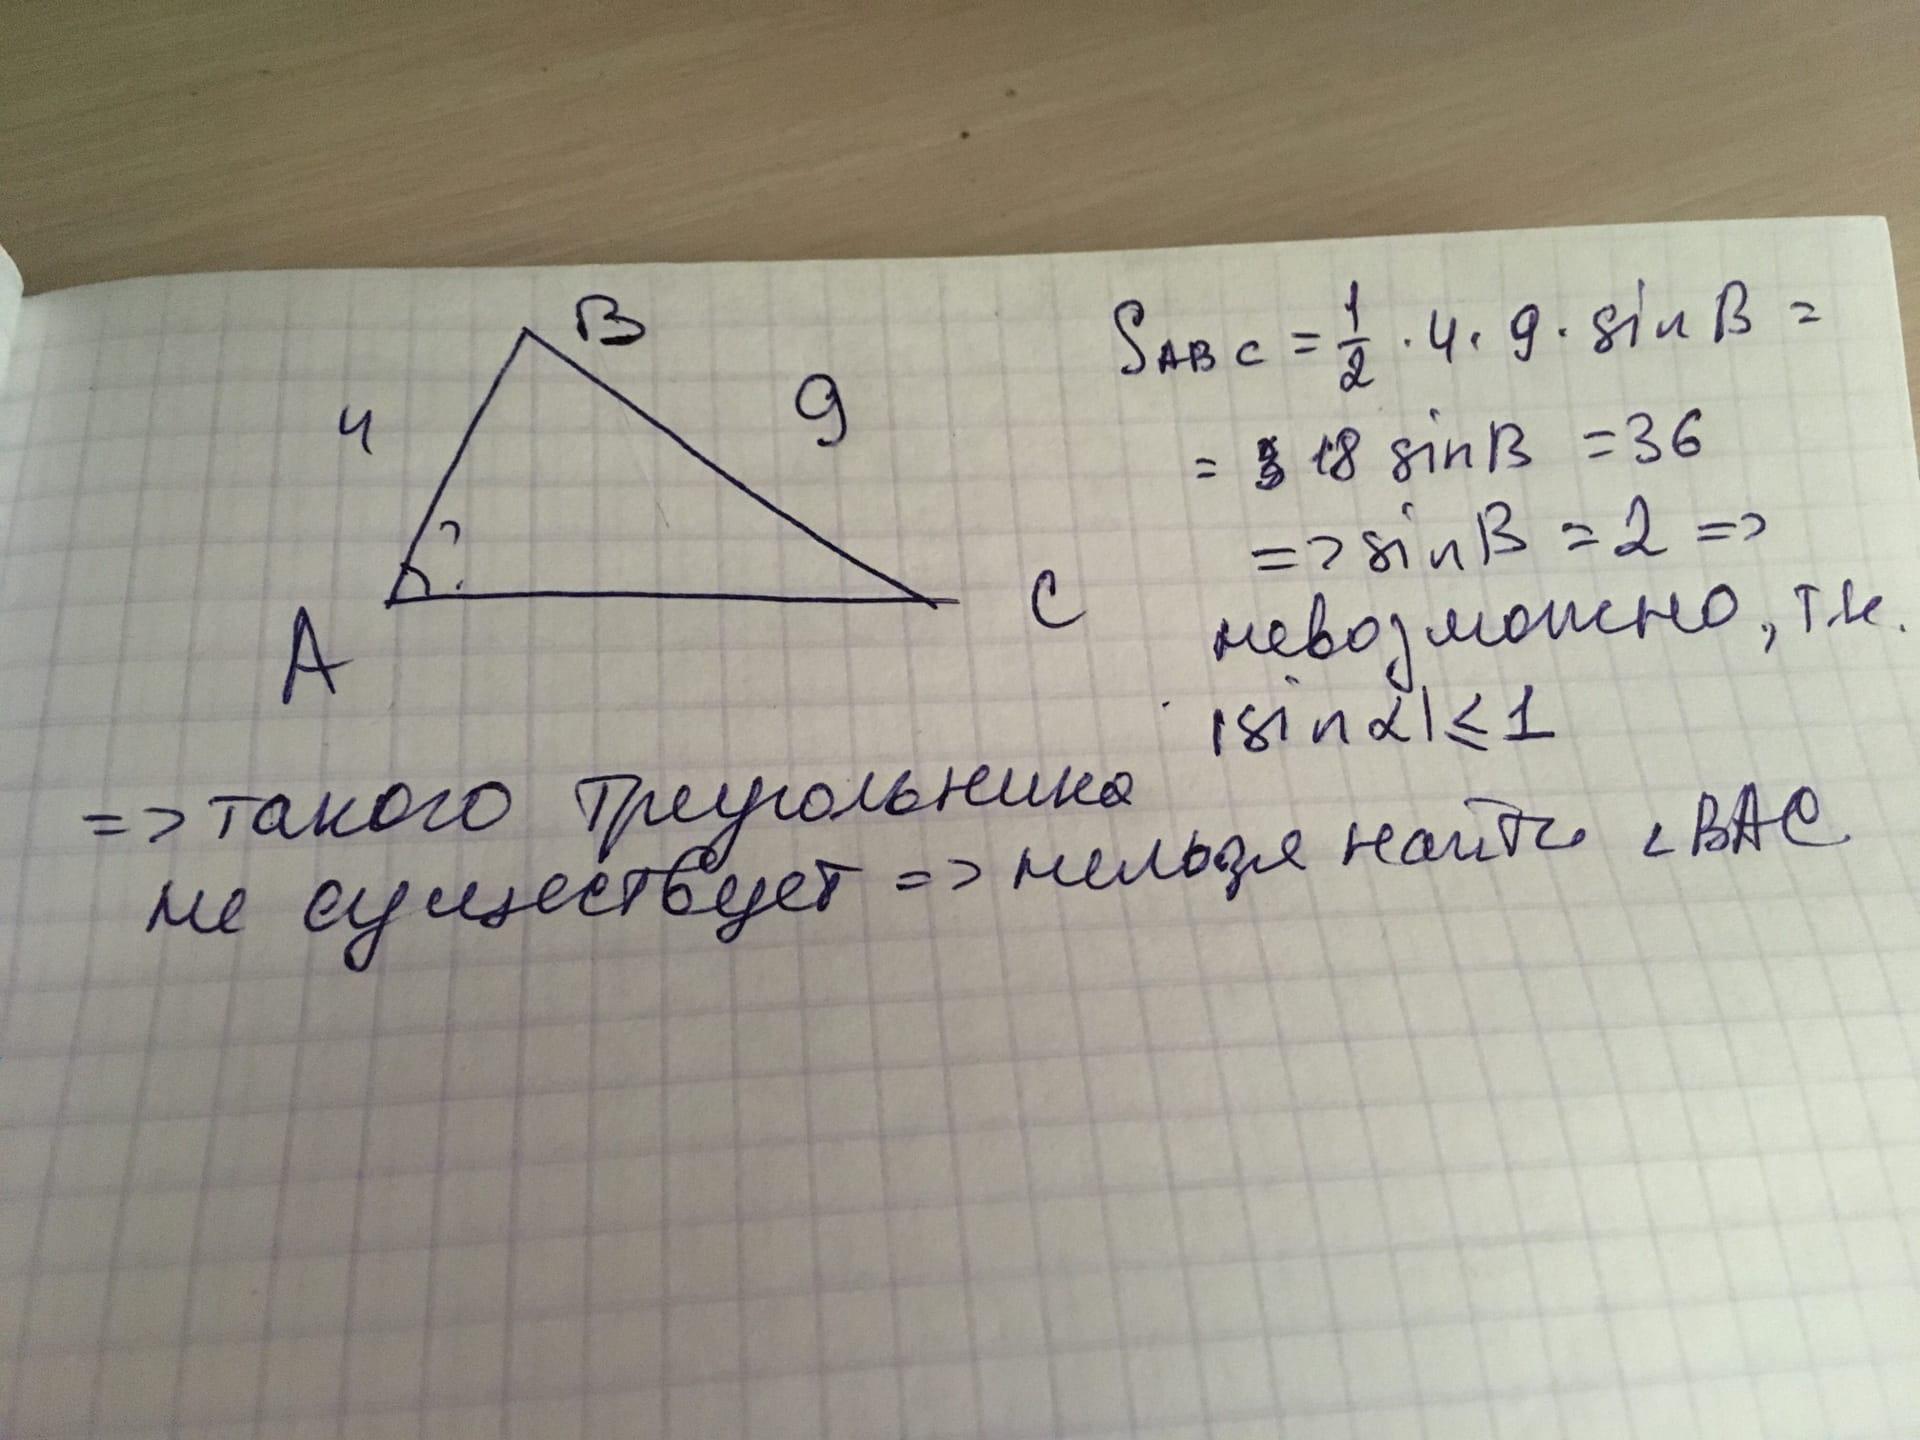 B
4
9
?
A
C
S ABC = 1/2 · 4 · 9 · sin B =
= 18 sin B = 36
=> sin B = 2 =>
невозможно, т.к.
|sin α| ≤ 1
=> такого треугольника
не существует => нельзя найти ∠BAC